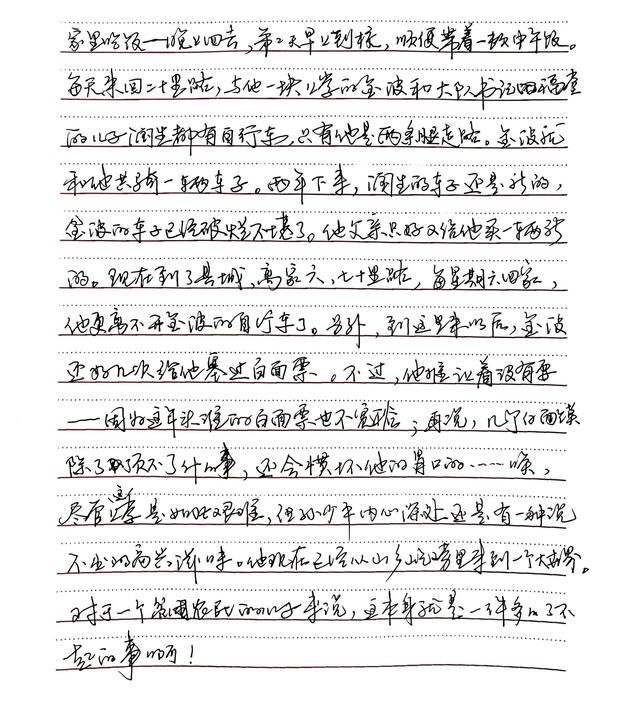 家里吃饭——晚上回去,第二天早上到校,顺便带着一顿中午饭。
每天来回二十里路,与他一块上学的金波和大队书记田福堂
的儿子润生都有自行车,只有他是两条腿走路。金波就
和他共骑一辆车子。两年下来,润生的车子还是新的,
金波的车子已经破烂不堪了。他父亲只好又给他买一辆新
的。现在到了县城,离家六、七十里路,每星期六回家,
他更离不开金波的自行车了。另外,到这里来以后,金波
还好几次给他塞过白面票。不过,他推让着没有要
——因为这年头谁的白面票也不宽裕;再说,几个白面馍
除了顶不了什么事,还会惯坏他的胃口的……唉,
尽管上这学是如此艰难,但孙少平内心深处还是有一种说
不出的高兴滋味。他现在已经从山乡圪崂里来到一个大世界。
对于一个贫困农民的儿子来说,这本身就是一件多么了不
起的事啊!